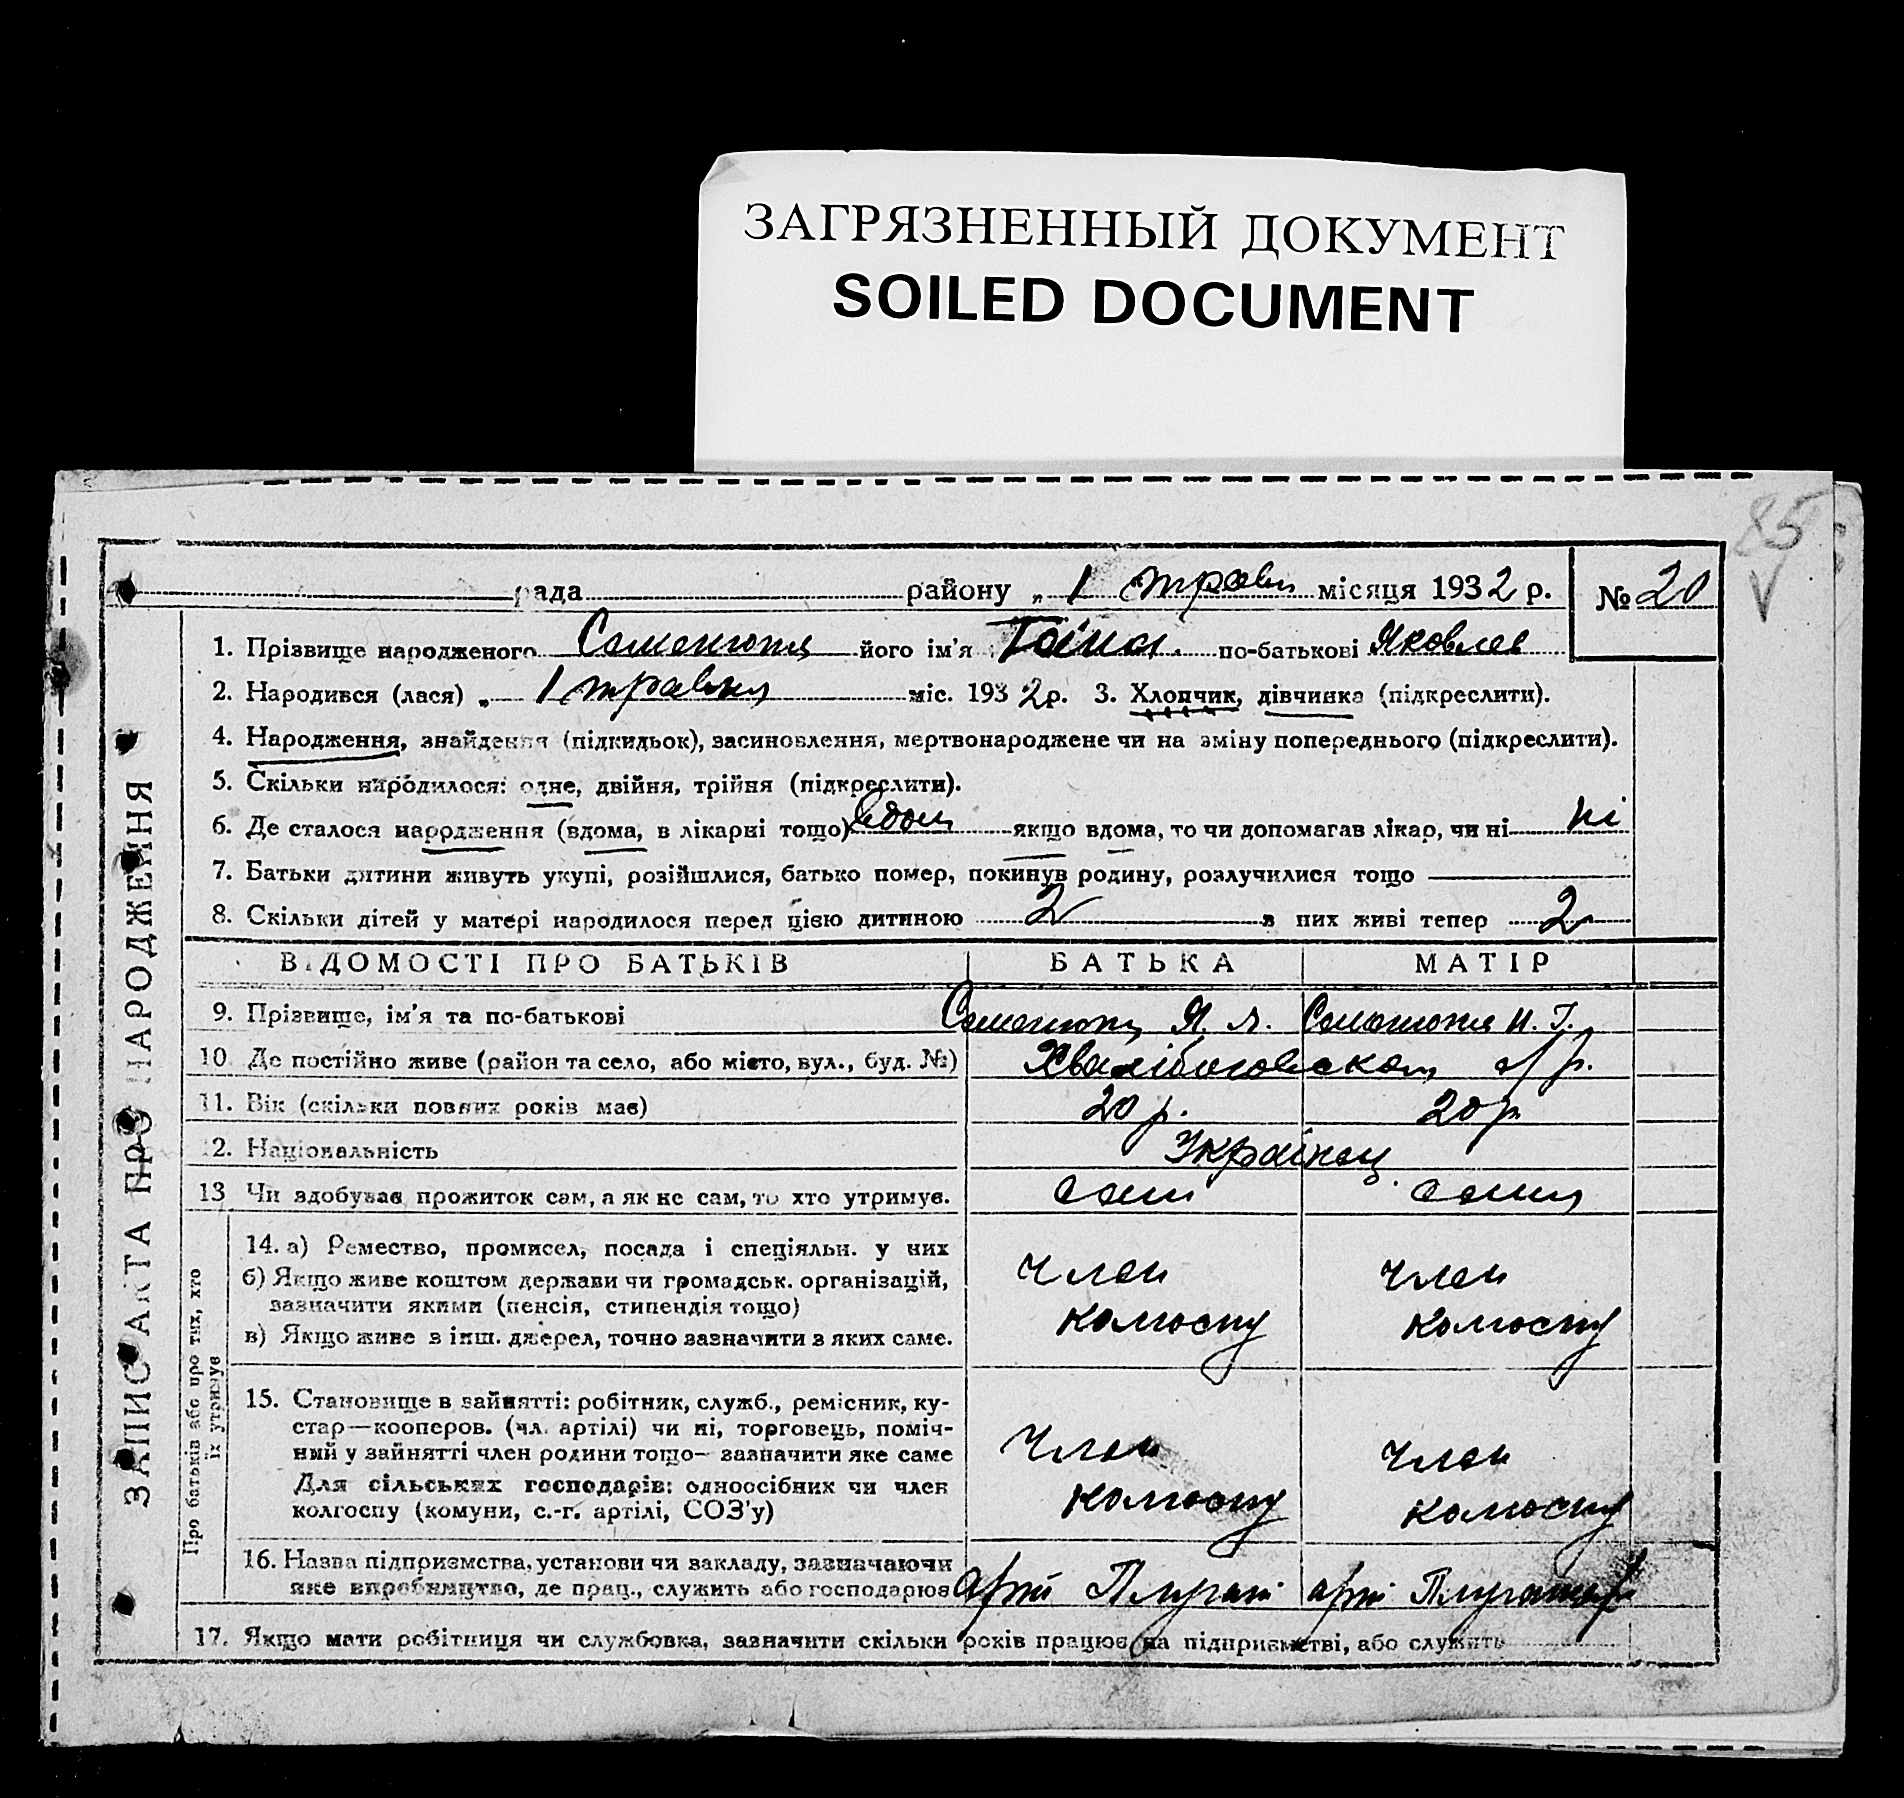 ЗАГРЯЗНЕННЫЙ ДОКУМЕНТ
SOILED DOCUMENT
85
рада района „ 1 травн місяця 1932 р. № 20
1. Прізвище народженого його ім'я по-батькові Яковлев
2. Народився (лася) „ 1 травня міс. 1932 р. 3. Хлопчик, дівчинка (підкреслити).
4. Народження, знайдення (підкидьок), засиновлення, мертвонароджене чи на зміну попереднього (підкреслити).
5. Скільки народилося: одне, двійня, трійня (підкреслити).
6. Де сталося народження (вдома, в лікарні тощо) вдом якщо вдома, то чи допомагав лікар, чи ні ні
7. Батьки дитини живуть укупі, розійшлися, батько помер, покинув родину, розлучилися тощо
8. Скільки дітей у матері народилося перед цією дитиною 2 з них живі тепер 2
ВІДОМОСТІ ПРО БАТЬКІВ БАТЬКА МАТІР
9. Прізвище, ім'я та по-батькові Я. Л. Н. Г.
10. Де постійно живе (район та село, або місто, вул., буд. №)
11. Вік (скільки повних років має) 20 р. 20 р
12. Національність Українец
13 Чи здобуває прожиток сам, а як не сам, то хто утримує. сам сама
14. а) Ремество, промисел, посада і спеціяльн. у них
б) Якщо живе коштом держави чи громадськ. організацій,
зазначити якими (пенсія, стипендія тощо)
в) Якщо живе з інш. джерел, точно зазначити з яких саме.
член колгоспу
член колгоспу
15. Становище в зайнятті: робітник, служб., ремісник, ку-
стар—кооперов. (чл. артілі) чи ні, торговець, поміч-
ний у зайнятті член родини тощо— зазначити яке саме
Для сільських господарів: одноосібник чи член
колгоспу (комуни, с.-г. артілі, СОЗ'у)
член колгоспу
член колгоспу
16. Назва підприємства, установи чи закладу, зазначаючи
яке виробництво, де прац., служить або господарює
арт арт
17. Якщо мати робітниця чи службовка, зазначити скільки років працює на підприємстві, або служить
ЗАПИС АКТА ПРО НАРОДЖЕННЯ
Про батьків або про тих, хто
їх утримує